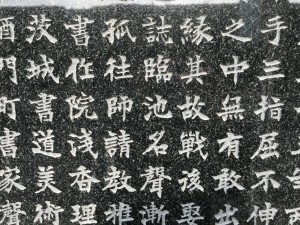 手三指屈不伸
之中無有敢出
縁其故戦後娶
誌臨池名聲漸
孤往師請教雅
書任院浅香理
茨城書道美術
酒門町書家聲